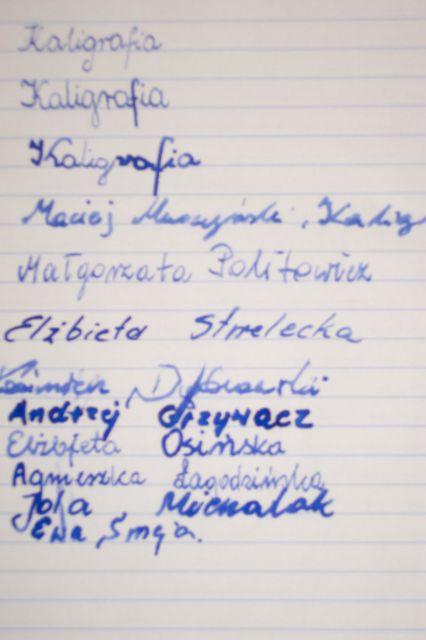 Kaligrafia
Kaligrafia
Kaligrafia
Maciej
Małgorzata Politowicz
Elżbieta Strzelecka
Kazimierz Dybowski
Andrzej Grzywacz
Elżbieta Osińska
Agnieszka Łagodzińska
Jola Michalak
Ewa Smęja.